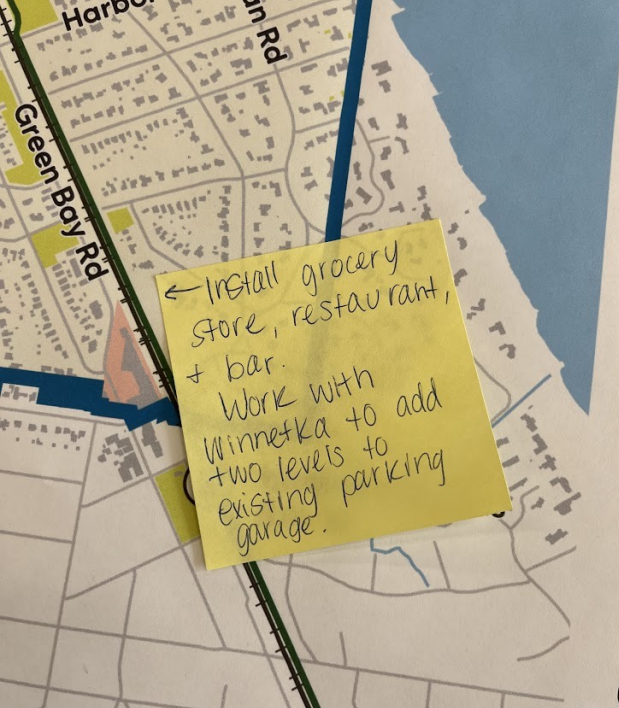 Harbo
an Rd
Green Bay Rd
← Install grocery
store, restaurant,
+ bar.
Work with
Winnetka to add
two levels to
existing parking
garage.